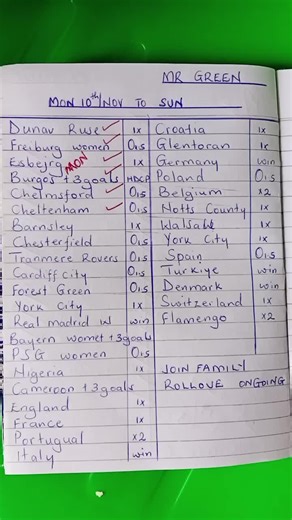 MR GREEN
MON 10th/NOV TO SUN
Dunav Ruse 1x Croatia 1x
Freiburg women O1.5 Glentoran 1x
Esbejrg MON 1x Germany win
Burgos +3goals HDCP Poland O1.5
Chelmsford O1.5 Belgium x2
Cheltenham O1.5 Notts County 1x
Barnsley 1x Walsall 1x
Chesterfield O1.5 York City 1x
Tranmere Rovers O1.5 Spain O1.5
Cardiff City O1.5 Turkiye win
Forest Green O1.5 Denmark win
York City 1x Switzerland 1x
Real madrid w win Flamengo x2
Bayern women +3goals
PSG women O1.5
Nigeria 1x JOIN FAMILY
Cameroon +3goals ROLLOVE ONGOING
England 1x
France 1x
Portugual x2
Italy win